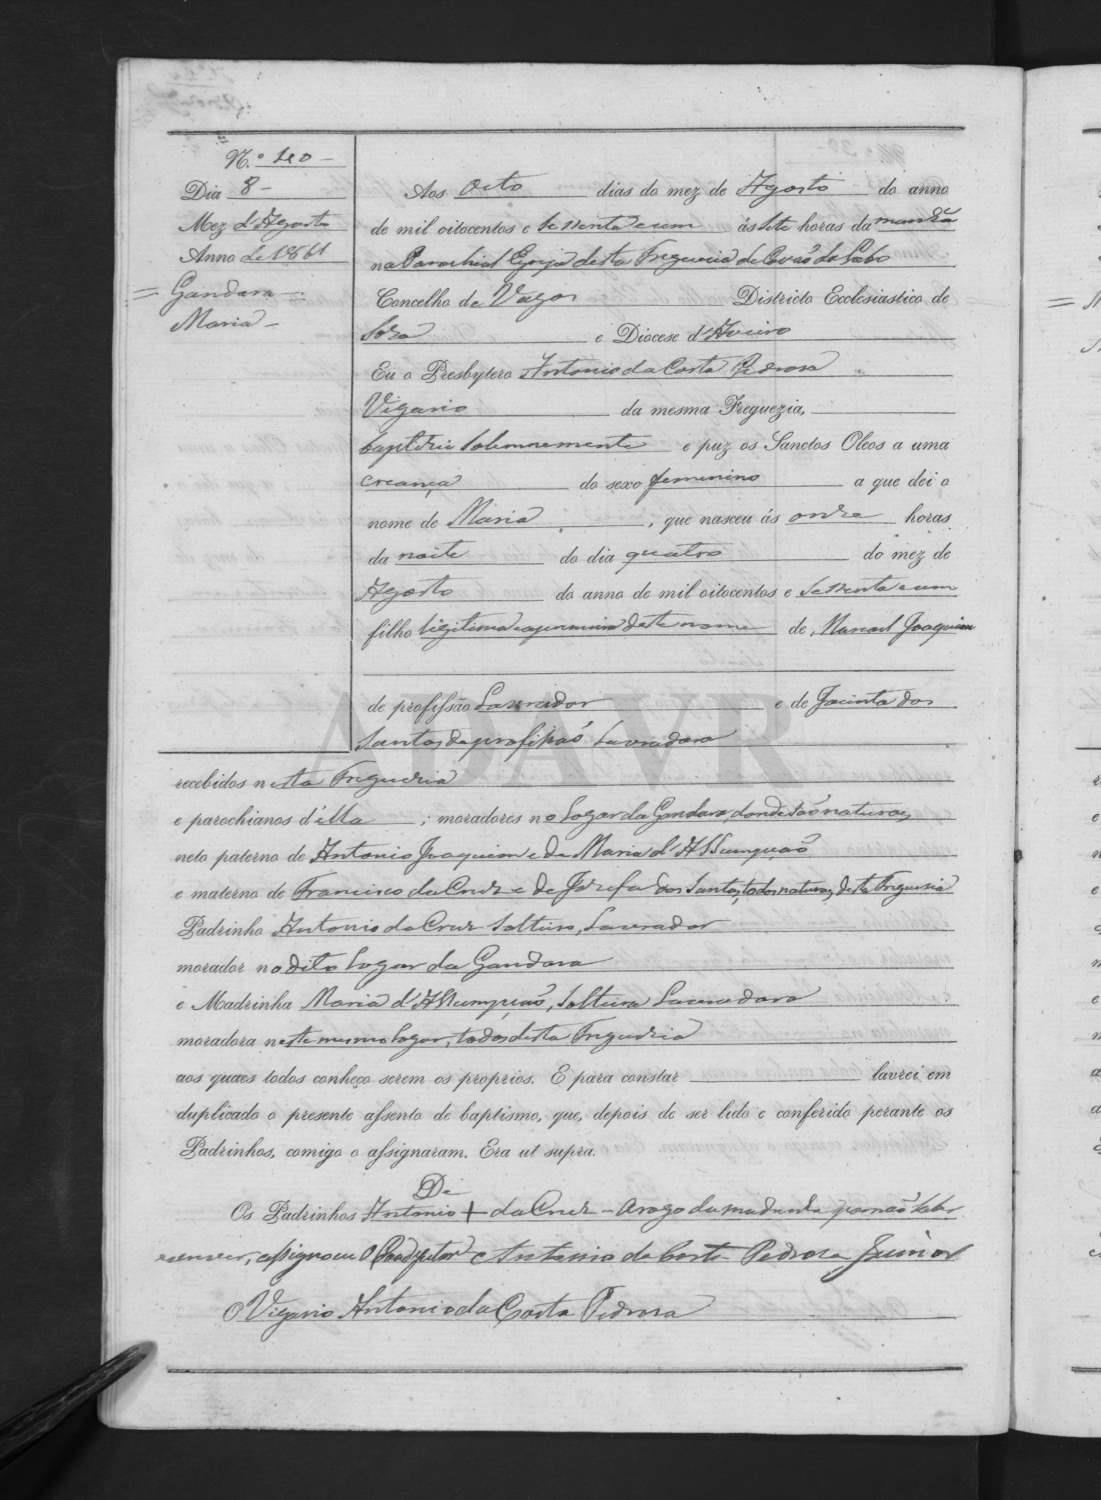 N.º 40
Dia 8
Mez d'Agosto
Anno de 1861
Gandara
Maria
Aos Oito dias do mez de Agosto do anno
de mil oitocentos e sessenta e um ás sete horas da manhã
na Parochial Egreja desta Freguezia de Covão do Lobo
Concelho de Vagos Districto Ecclesiastico de
Soza e Diocese d'Aveiro
Eu o Presbytero Antonio da Costa Pedrosa
Vigario da mesma Freguezia,
baptizei solemnemente e puz os Sanctos Oleos a uma
creança do sexo femenino a que dei o
nome de Maria, que nasceu ás onze horas
da noite do dia quatro do mez de
Agosto do anno de mil oitocentos e sessenta e um
filho legitima e a primeira deste nome de, Manoel Joaquim
de profissão Lavrador e de Jacinta dos
Santos de profissaõ Lavradora
recebidos nesta Freguezia
e parochianos d'ella; moradores no Logar da Gandara, donde saõ naturaes,
neto paterno de Antonio Joaquim e de Maria d'Assumpçaõ
e materno de Francisco da Cruz e de Josefa dos Santos, todos naturaes desta Freguezia
Padrinho Antonio da Cruz Solteiro, Lavrador
morador no dito Logar da Gandara
e Madrinha Maria d'Assumpçaõ, Solteira Lavradora
moradora neste mesmo Logar, todos desta Freguezia
aos quaes todos conheço serem os proprios. E para constar lavrei em
duplicado o presente assento de baptismo, que, depois de ser lido e conferido perante os
Padrinhos, comigo o assignaram. Era ut supra.
De
Os Padrinhos Antonio + da Cruz - A rogo da madrinha por naõ saber
escrever, assigno eu O Coadjutor Antonio da Costa Pedrosa Junior
O Vigario Antonio da Costa Pedrosa
ADAVR